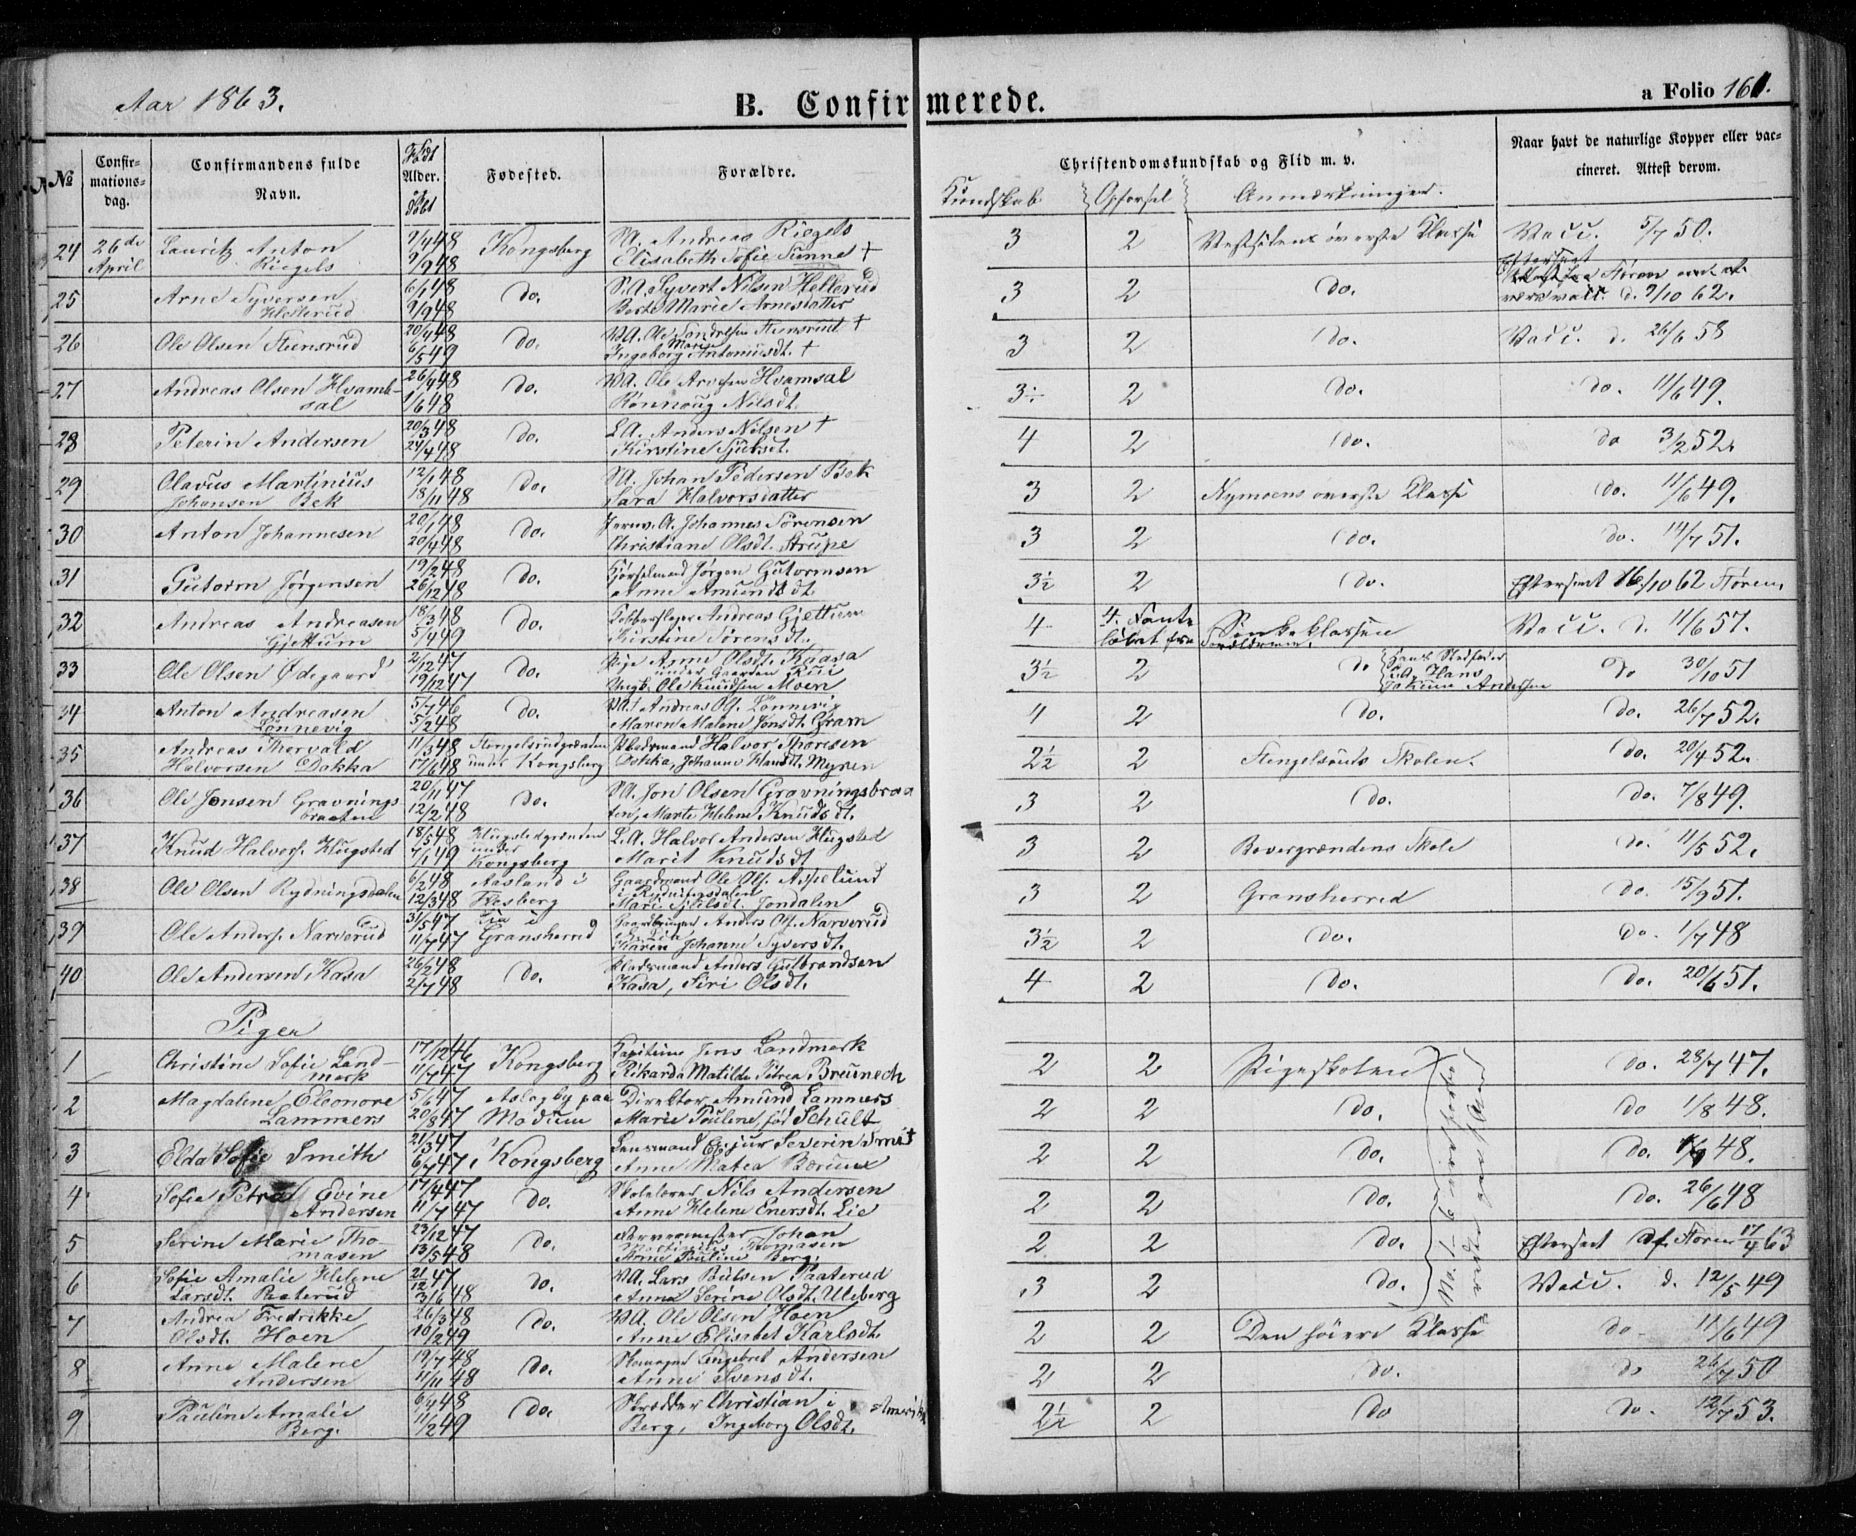 Aar 1863.
B. Confirmerede.
a Folio 161.
No
Confir-
mations-
dag.
Confirmandens fulde
Navn.
Født
Alder.
og
døbt
Fødested.
Forældre.
Christendomskundskab og Flid m. v.
Kundskab Opførsel Anmærkninger.
Naar havt de naturlige Kopper eller vac-
cineret. Attest derom.
24 26de April Lauritz Anton Riegels 9/4 48 9/9 48 Kongsberg Andreas Riegels Elisabeth Sofie Sunne † 3 2 Vestsidens øverste Klasse Vacc. 5/7 50.
25 Arne Syversen Hellerud 6/1 48 9/9 48 do. Syvert Nilsen Hellerud Berte Marie Arnesdatter 3 2 do. 9/10 62.
26 Ole Olsen Stensrud 20/9 48 6/5 49 do. Stensrud † Ingeborg Marie Antoniusdt. † 3 2 do. Vacc. d. 26/6 58
27 Andreas Olsen Hvamb-
sal 26/4 48 1/6 48 do. Ole Hvamsal Rønnoug Nilsdt. 3 2 do. do. 11/6 49.
28 Peterin Andersen 20/3 48 24/4 48 do. Anders Nilsen † Kirstine 4 2 do. do 3/2 52.
29 Olavus Martinius Johansen Bek 12/1 48 18/11 48 do. Johan Pedersen Bek Sara Halvorsdatter 3 2 Nymoens øverste Klasse do. 11/6 49.
30 Anton Johannesen 20/1 48 20/4 48 do. Johannes Sørensen Christiane Olsdt. Strupe 3 2 do. do. 14/7 51.
31 Gutorm Jørgensen 19/2 48 26/12 48 do. Kjørselmand Jørgen Gutormsen Anne Amundsdt 3½ 2 do. Efterseet 16/10 62 Støren.
32 Andreas Andreasen Gjettum 18/3 48 5/4 49 do. Kobberslager Andreas Gjettum Kirstine Sørensdt. 4 4. Sinkeklassen Vacc. d. 11/6 57.
33 Ole Olsen Ødegaard 2/12 47 19/12 47 do. Pige Anne Olsdt. Kaasa under Gaarden Rui Ungk. Ole Knudsen Moen 3½ 2 do do 30/10 51
34 Anton Andreasen Lønnevig 5/7 46 5/2 48 do. Andreas Ols. Lønnevig Maren Malene Jonsdt. Gram 4 2 do. do. 26/7 52.
35 Andreas Thorvald Halvorsen Dokka 11/3 48 17/6 48 under Kongsberg Halvor Thoresen Dokka, Johanne Hansdt. Myren 2½ 2 Stengelsruds Skolen. do. 20/4 52.
36 Ole Jonsen Gravnings-
braaten 20/11 47 12/2 48 do. Jon Olsen Gravningsbraa
ten, Marte Helene Knudsdt. 3 2 do. do. 7/8 49.
37 Knud Halvors. Klugsted 18/5 48 7/1 49 Klugstedgrænden under Kongsberg Halvor Andersen Klugsted Marit Knudsdt 3 2 Bevergrændens Skole do. 11/5 52.
38 Ole Olsen Rydningsdalen 6/2 48 12/3 48 Aasland i Flesberg Gaardmand Ole Ols. Aspelund i Rydningsdalen Mari Nilsdt. Jondalen 3 2 Gransherred do. 15/9 51.
39 Ole Anders. Narverud 31/5 47 11/7 47 Lia i Gransherred Gaardbruger Anders Ols. Narverud Karen Johanne Syversdt. 3½ 2 do. do. 1/7 48
40 Ole Andersen Kasa 26/2 48 2/7 48 do. Pladsmand Anders Gulbrandsen Kasa, Siri Olsdt. 4 2 do. do. 20/6 51.
Piger
1 Christine Sofie Land-
mark 17/12 46 11/7 47 Kongsberg Kapiteine Jens Landmark Rikarda Matilde Petrea Breunech 2 2 Pigeskolen do. 28/7 47.
2 Magdalene Eleonore Lammers 5/6 47 20/8 47 Aslagby paa Modum Direktør Amund Lammers Marie Pouline født Schult 2 2 do. do 1/8 48.
3 Elda Sofie Smith 21/3 47 6/7 47 Kongsberg Lensmand Severin Smit Anne Matea Bærum 2 2 do. do. 48.
4 Sofie Petra Evine Andersen 17/4 47 11/7 47 do. Skolelærer Nils Andersen Anne Helene Enersdt. Lie 2 2 do. do. 26/6 48
5 Serine Marie Tho-
masen 23/12 47 13/5 48 do. Farvermester Johan Martinius Thomasen Anne Pauline Berg. 2 2 do. Efterseet af Støren 17/4 63
6 Sofie Amalie Helene Larsdt. Paaterud 21/12 47 3/6 48 do. Lars Paaterud Anne Serine Olsdt. Uleberg 3 2 do. Vacc. d. 12/5 49
7 Andrea Fredrikke Olsdt. Hoen 26/3 48 10/2 49 do. Ole Olsen Hoen Anne Elisabet Karlsdt. 2 2 Den høiere Klasse do 11/6 49
8 Anne Malene Andersen 19/7 48 11/11 48 do. Skomager Engebret Andersen Anne Svensdt. 2 2 do. do 26/7 50
9 Pauline Amalie Berg. 6/4 48 11/2 49 do. Skrædder Christian i Amerika Berg, Ingeborg Olsdt. 2½ 2 do do. 12/7 53.